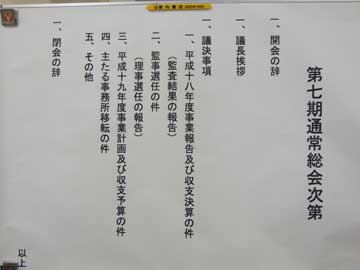 第七期通常総会次第
一、開会の辞
一、議長挨拶
一、議決事項
一、平成十八年度事業報告及び収支決算の件
（監査結果の報告）
二、監事選任の件
（理事選任の報告）
三、平成十九年度事業計画及び収支予算の件
四、主たる事務所移転の件
五、その他
一、閉会の辞
以上